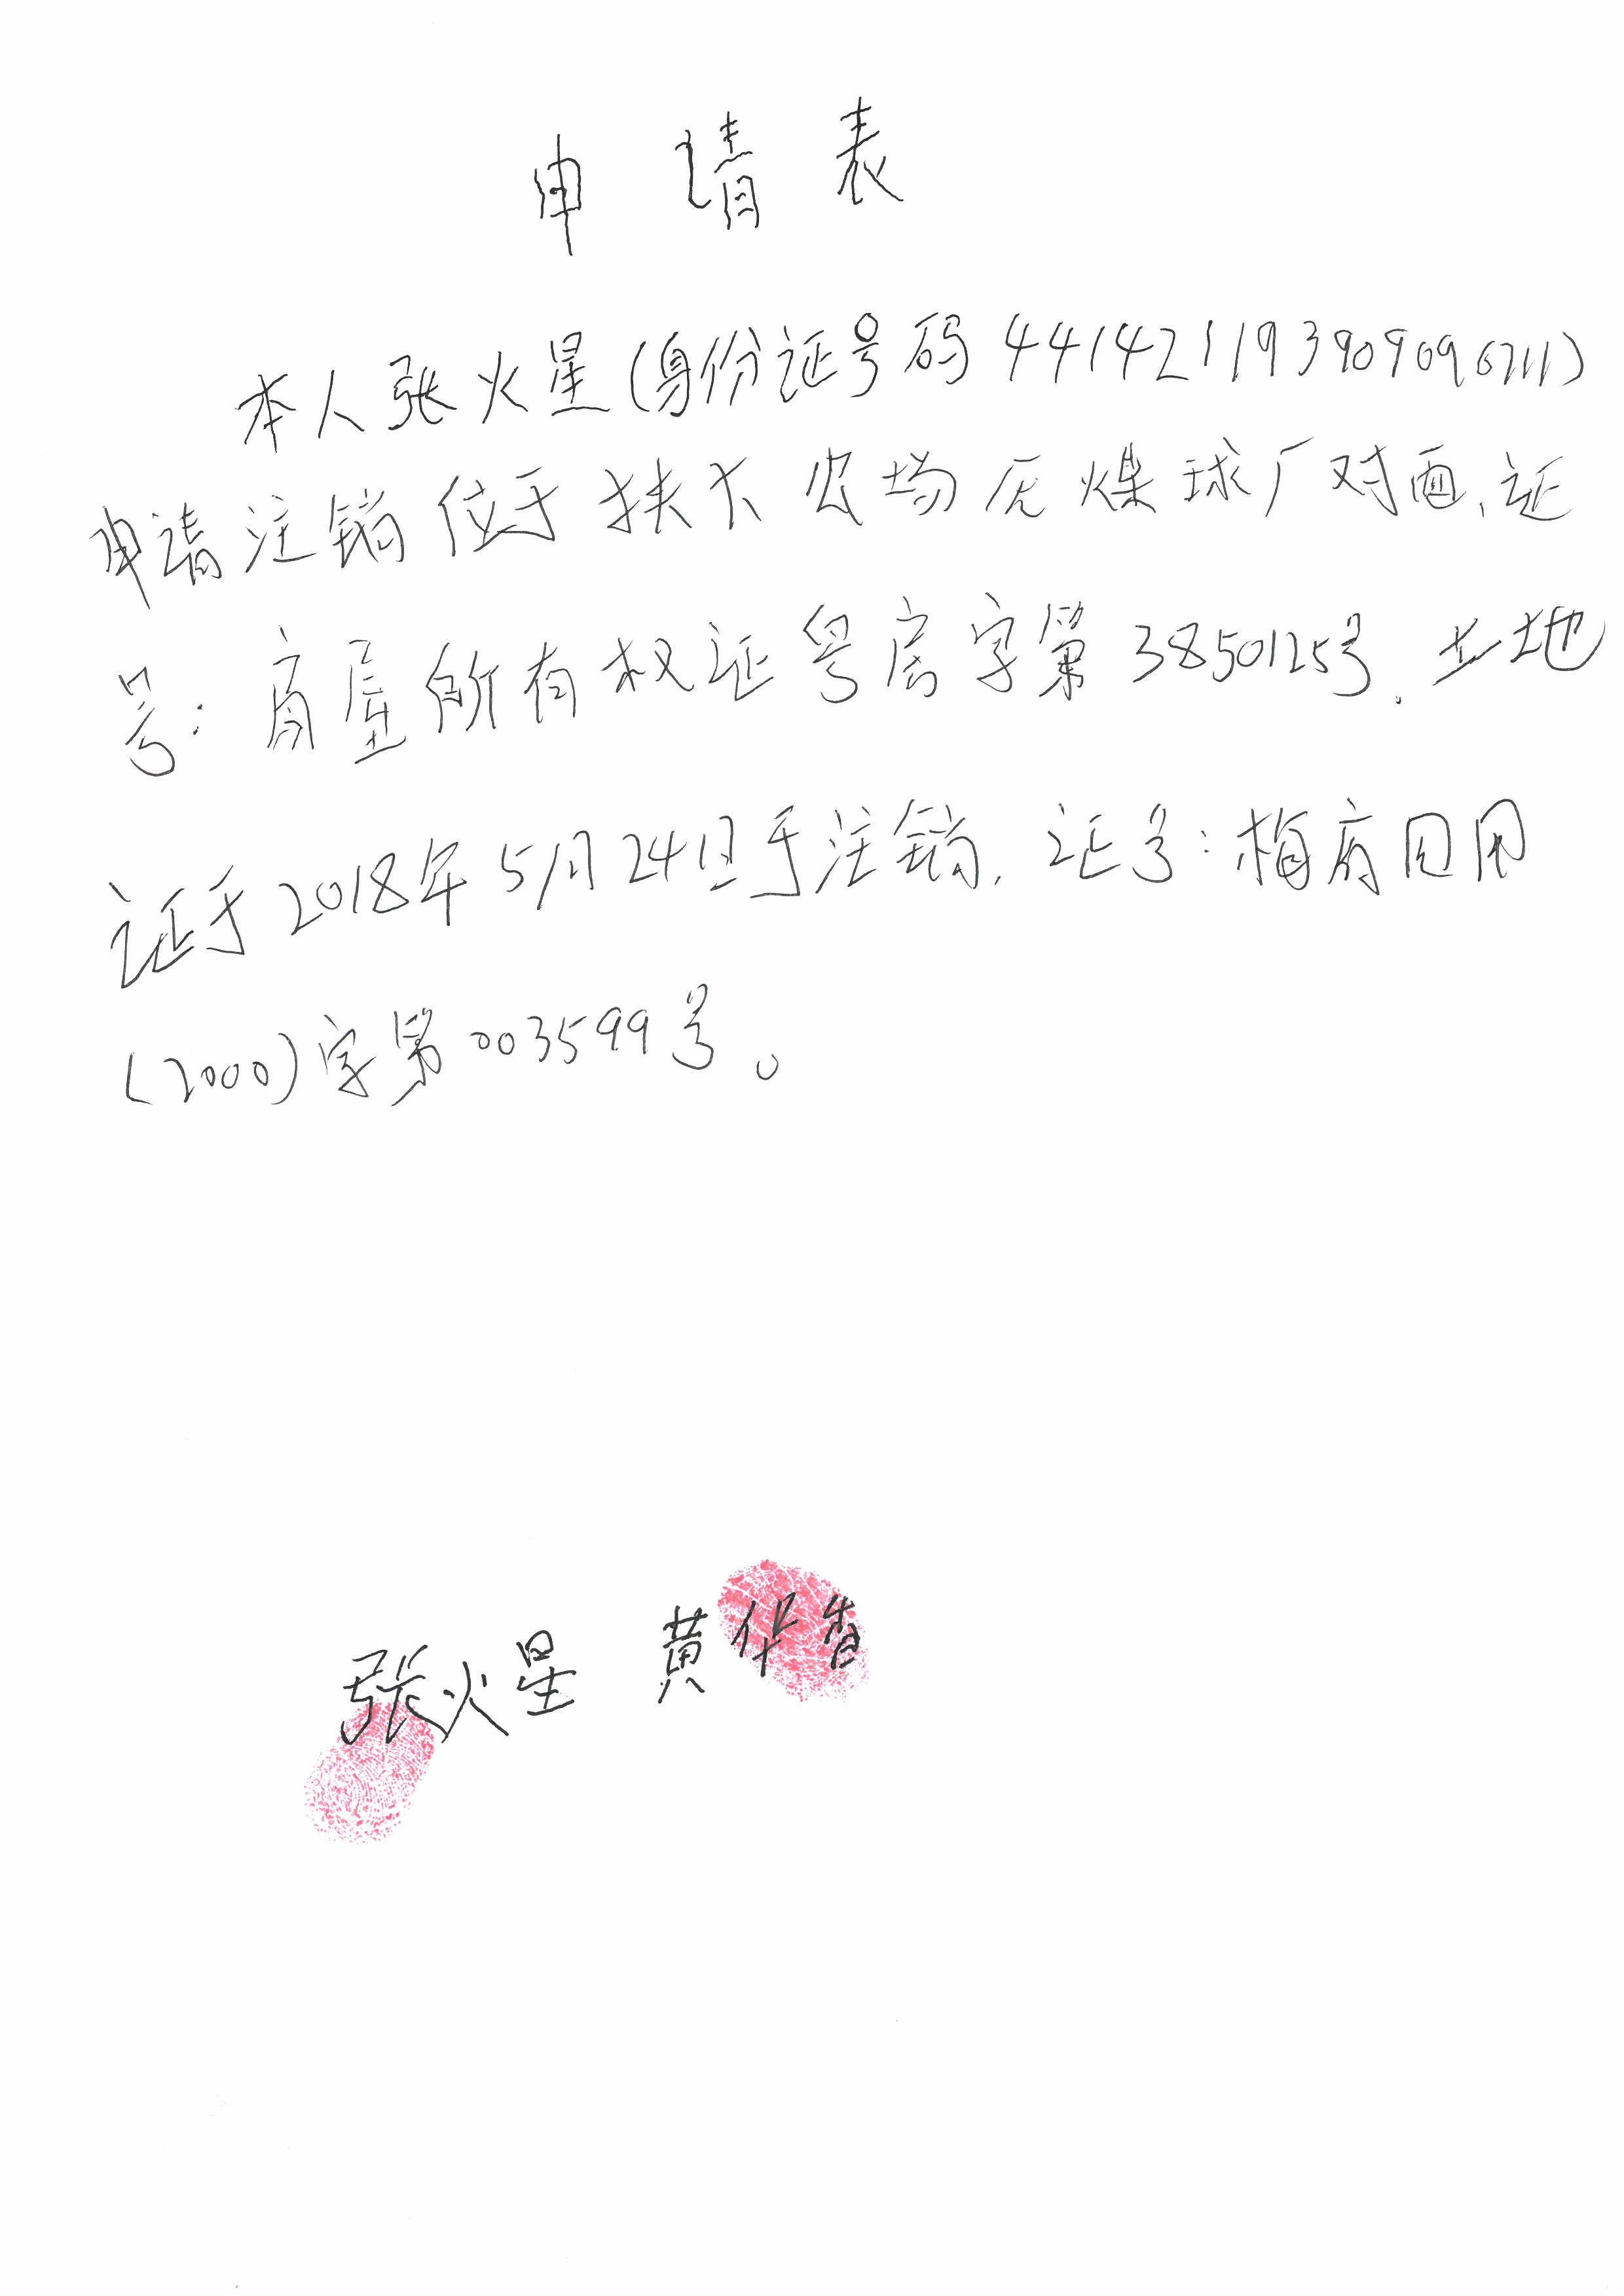 申请表
本人张火星(身份证号码441421193909096711)
申请注销位于扶大农场原煤球厂对面,证
号:房屋所有权证粤房字第3850125号.土地
证于2018年5月24日于注销.证号:梅府国用
(2000)字第003599号。
张火星 黄华香